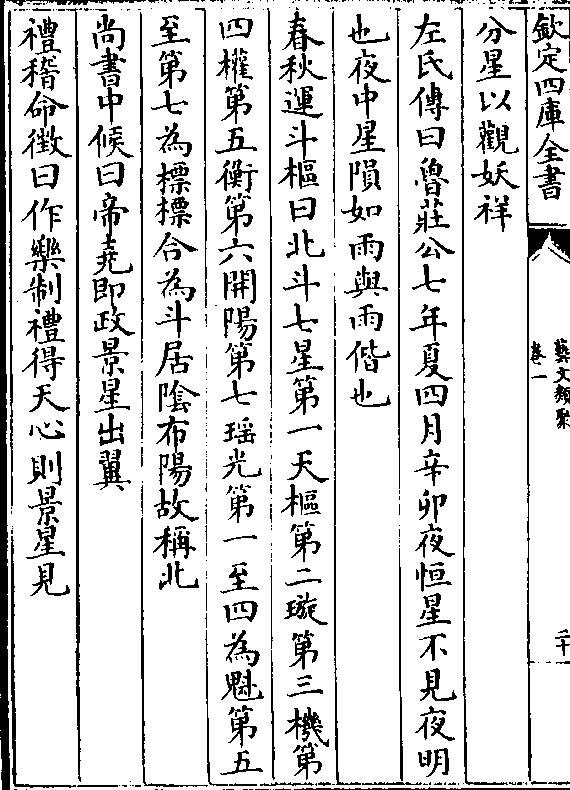 欽定四庫全書
藝文類聚
卷一
二十
分星以觀妖祥
左氏傳曰魯莊公七年夏四月辛卯夜恒星不見夜明
也夜中星隕如雨與雨偕也
春秋運斗樞曰北斗七星第一天樞第二璇第三機第
四權第五衡第六開陽第七瑶光第一至四為魁第五
至第七為標標合為斗居陰布陽故稱北
尚書中候曰帝堯即政景星出翼
禮稽命徵曰作樂制禮得天心則景星見